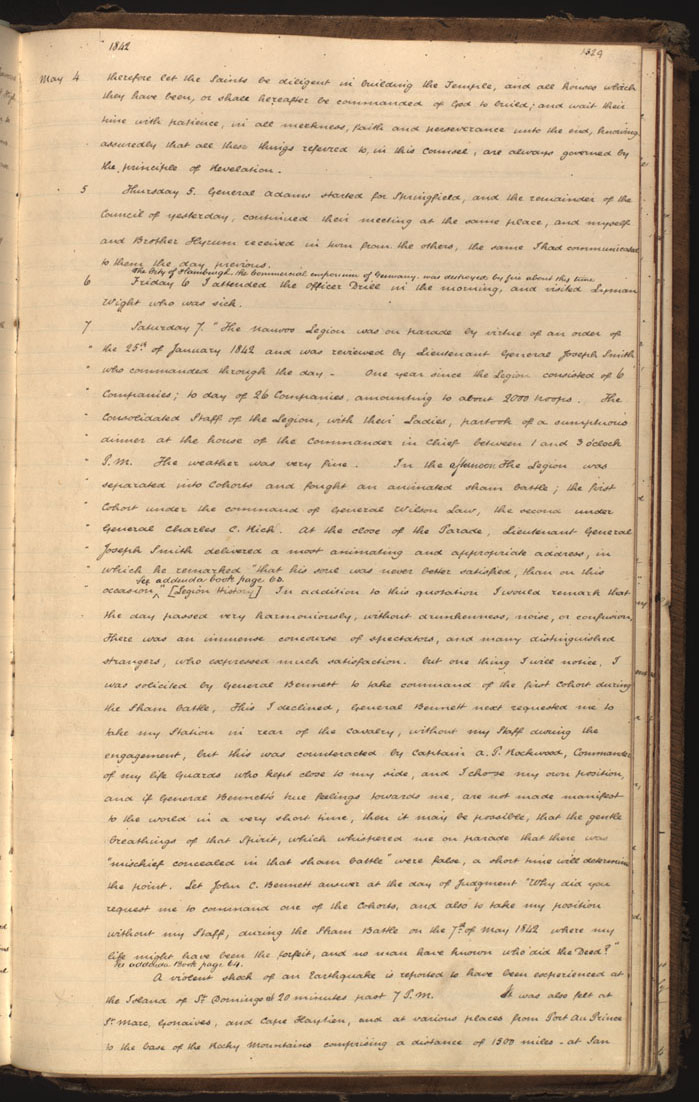 1842 1329
May 4 therefore let the Saints be diligent in building the Temple, and all houses which
they have been, or shall hereafter be commanded of God to build; and wait their
time with patience, in all meekness, faith and perseverance unto the end, knowing
assuredly that all these things referred to, in this Counsel, are always governed by
the principle of Revelation.
5 Thursday 5. General Adams started for Springfield, and the remainder of the
Council of yesterday, continued their meeting at the same place, and myself
and Brother Hyrum received in turn from the others, the same I had communicated
to them the day previous.
The City of Hamburgh, the Commercial emporium of Germany, was destroyed by fire about this time
6 Friday 6 I attended the Officer Drill in the morning, and visited Lyman
Wight who was sick.
7 Saturday 7. "The Nauvoo Legion was on parade by virtue of an order of
" the 25th of January 1842 and was reviewed by Lieutenant General Joseph Smith
" who commanded through the day – One year since the Legion consisted of 6
" Companies; to day of 26 Companies, amounting to about 2000 troops. The
" Consolidated Staff of the Legion, with their Ladies, partook of a sumptuous
" dinner at the house of the Commander in Chief between 1 and 3 o'clock
" P.M. The weather was very fine. In the afternoon The Legion was
" separated into Cohorts and fought an animated sham battle; the first
" Cohort under the command of General Wilson Law, the second under
" General Charles C. Rich. At the close of the Parade, Lieutenant General
" Joseph Smith delivered a most animating and appropriate address, in
" which he remarked "that his soul was never better satisfied, than on this
See addenda book page 60.
" occasion," [Legion History] In addition to this quotation I would remark that
the day passed very harmoniously, without drunkenness, noise, or confusion,
There was an immense concourse of spectators, and many distinguished
strangers, who expressed much satisfaction. but one thing I will notice, I
was solicited by General Bennett to take command of the first Cohort during
the Sham battle, This I declined, General Bennett next requested me to
take my Station in rear of the Cavalry, without my Staff during the
engagement, but this was counteracted by Captain A. P. Rockwood, Commander
of my life Guards who kept close to my side, and I chose my own position,
and if General Bennett's true feelings towards me, are not made manifest
to the world in a very short time, then it may be possible, that the gentle
breathings of that Spirit, which whispered me on parade that there was
"mischief concealed in that sham battle" were false, a short time will determine
the point. Let John C. Bennett answer at the day of Judgment "Why did you
request me to command one of the Cohorts, and also to take my position
without my Staff, during the Sham Battle on the 7th of May 1842 where my
life might have been the forfeit, and no man have known who did the Deed?"
See addenda Book page 64.
A violent shock of an Earthquake is reported to have been experienced at
the Island of St. Domingo at 20 minutes past 7 P.M. It was also felt at
St. Marc, Gonaives, and Cape Haytien, and at various places from Port Au Prince
to the base of the Rocky Mountains comprising a distance of 1500 miles – at San